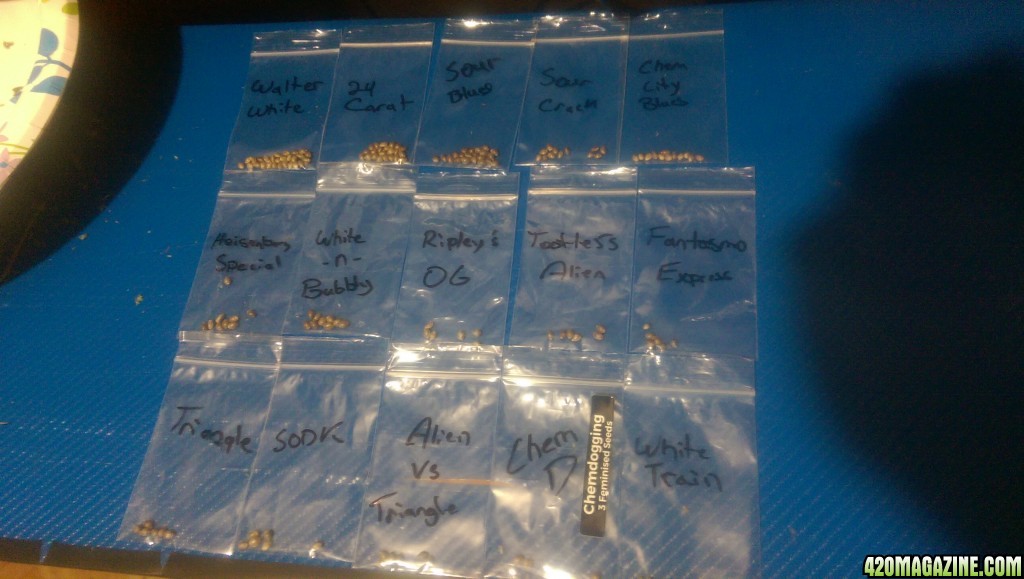 Walter
White
24
Carat
Sour
Blues
Sour
Crack
Chem
City
Blues
Heisenberg
Special
White
-n-
Bubby
Ripley's
OG
Tookless
Alien
Fantasmo
Express
Triangle
SODK
Alien
Vs
Triangle
Chem
D
Chemdogging
3 Feminised Seeds
White
Train
420MAGAZINE.COM